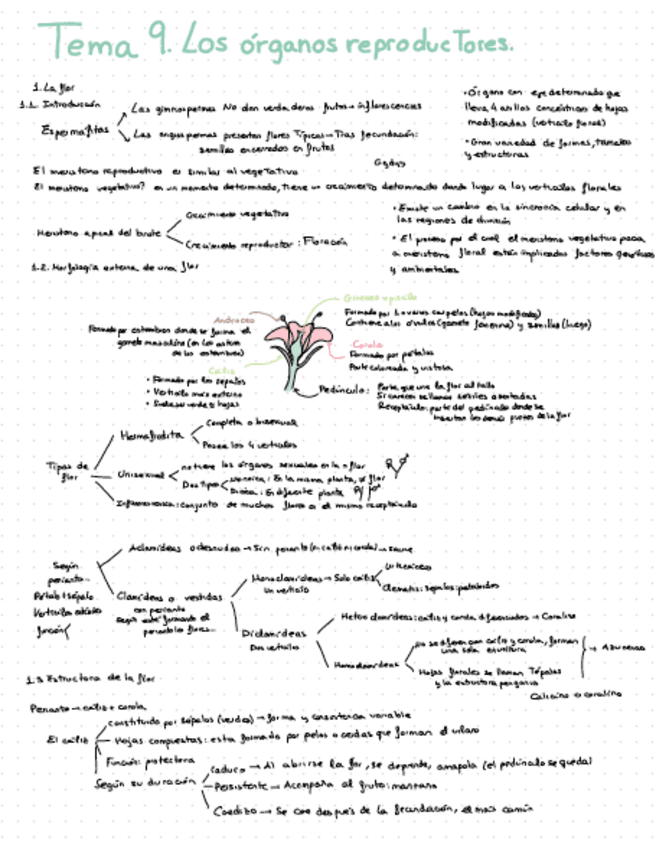 Tema 9. Los órganos reproductores.
1. La flor
1.1. Introducción
Espermafitas
Las gimnospermas No dan verdaderos frutos → inflorescencias
Las angiospermas presentan flores Típicas → Tras fecundación:
semillas encerradas en frutos
• Órgano con eje determinado que
lleva 4 anillos concéntricos de hojas
modificadas (verticilo floral)
• Gran variedad de formas, tamaños
y estructuras
El meristemo reproductivo es similar al vegetativo
El meristemo vegetativo? en un momento determinado, tiene un crecimiento determinado dando lugar a los verticilos florales
Meristemo apical del brote
Crecimiento vegetativo
Crecimiento reproductor: Floración
• Existe un cambio en la sincronía celular y en
las regiones de división
• El proceso por el cual el meristemo vegetativo pasa
a meristemo floral están implicados factores genéticos
y ambientales
1.2. Morfología externa de una flor
Gineceo o pistilo
Formado por 1 o varios carpelos (hojas modificadas)
Contiene a los óvulos (gameto femenino) y semillas (luego)
Androceo
Formado por estambres donde se forma el
gameto masculino (en las anteras
de los estambres)
Corola
Formado por pétalos
Parte coloreada y vistosa
Cáliz
• Formado por los sépalos
• Verticilo más externo
• Suele ser verde o hojas
Pedúnculo:
Parte que une la flor al tallo
Si carecen se llaman sésiles o sentadas
Receptáculo: parte del pedúnculo donde se
insertan las demás partes de la flor
Tipos de
flor
Hermafrodita
Completa o bisexual
Posee los 4 verticilos
Unisexual
no tiene los órganos sexuales en la = flor
Dos Tipos
Monoica: En la misma planta, ≠ flor
Dioica: En diferente planta
Inflorescencia: conjunto de muchas flores en el mismo receptáculo
Según
perianto
Pétalo + sépalo
Verticilos
función
Aclamídeas o desnudas → Sin perianto (ni cáliz ni corola) → Sauce
Clamídeas o vestidas
con perianto
Según esté formando el
perianto las flores...
Monoclamídeas → Solo cáliz
un verticilo
Clematis: sépalos petaloides
Diclamídeas
Dos verticilos
Heteroclamídeas: cáliz y corola diferenciados →
Homoclamídeas
no se diferencian cáliz y corola, forman
una sola estructura
Hojas florales se llaman Tépalos
y la estructura perigonio
→ Azucena
Calicino o coralino
1.3 Estructura de la flor
Perianto → cáliz + corola
El cáliz
constituido por sépalos (verdes) → forma y consistencia variable
Hojas compuestas: esta formado por pelos o cerdas que forman el vilano
Función: protectora
Según su duración
Caduco → Al abrirse la flor, se desprende, amapola (el pedúnculo se queda)
Persistente → Acompaña al fruto: manzana
Caedizo → Se cae después de la fecundación, el más común